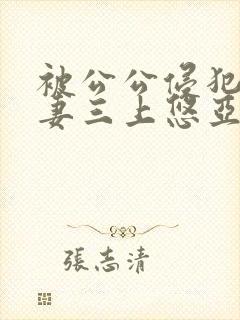 被公公侵犯
妻三上悠亞
張志清